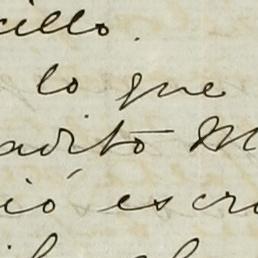 cillo.
lo que
adito M
ió escri